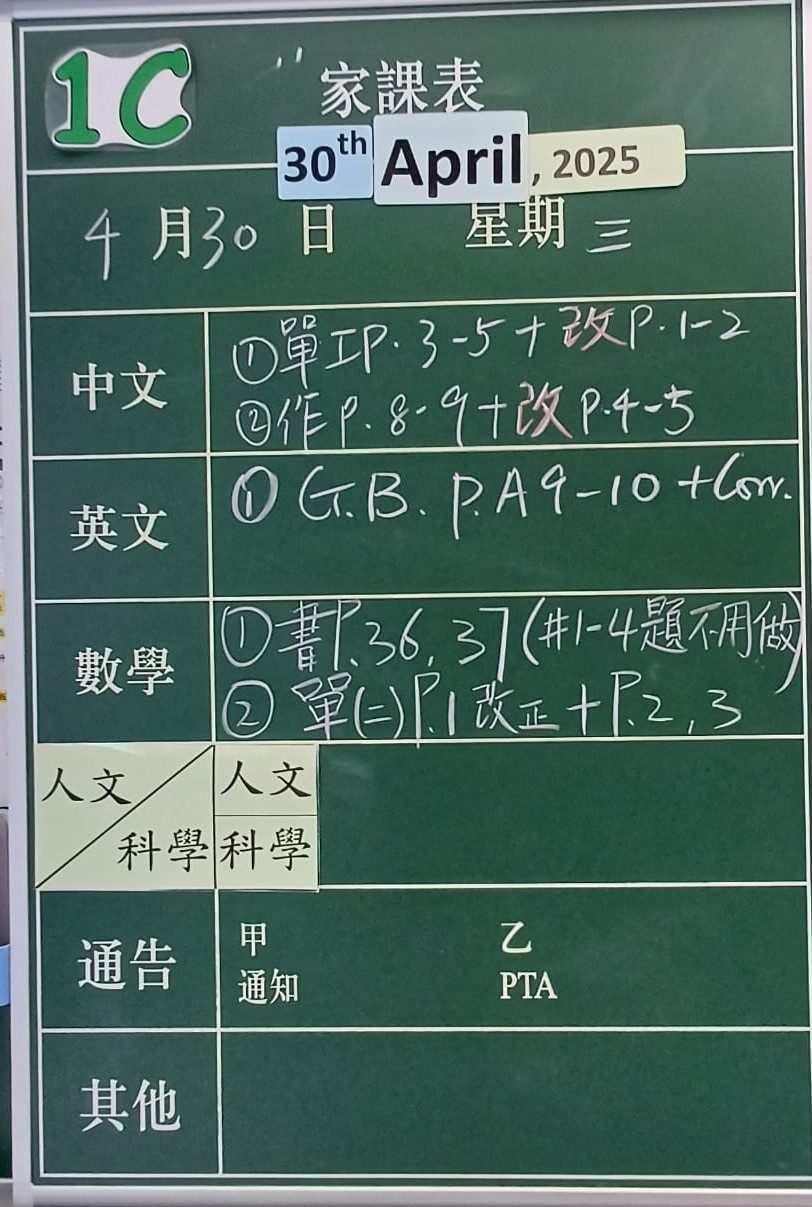 1C
家課表
30th April, 2025
4月30日 星期三
中文
①單工P.3-5+改P.1-2
②作P.8-9+改P.4-5
英文
① G.B. P.A9-10 +Corr.
數學
①書P.36,37(#1-4題不用做)
②單(二)P.1改正+P.2,3
人文/科學
人文
科學
通告
甲 乙
通知 PTA
其他